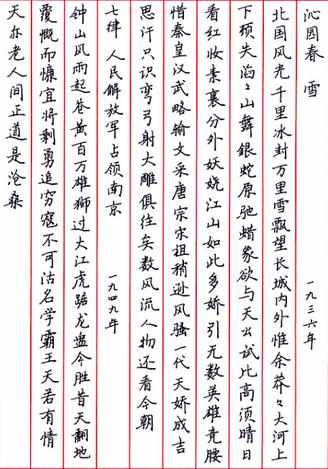 沁园春 雪 一九三六年
北国风光千里冰封万里雪飘望长城内外惟余莽々大河上
下顿失滔々山舞銀蛇原驰蜡象欲与天公试比高须晴日
看红妆素裹分外妖娆江山如此多娇引无数英雄竞腰
惜秦皇汉武略输文采唐宗宋祖稍逊风骚一代天娇成吉
思汗只识弯弓射大雕俱往矣数风流人物还看今朝
七律 人民解放军占领南京 一九四九年
钟山风雨起苍黄百万雄狮过大江虎踞龙盘今胜昔天翻地
覆慨而慷宜将剩勇追穷寇不可沽名学霸王天若有情
天亦老人间正道是沧桑